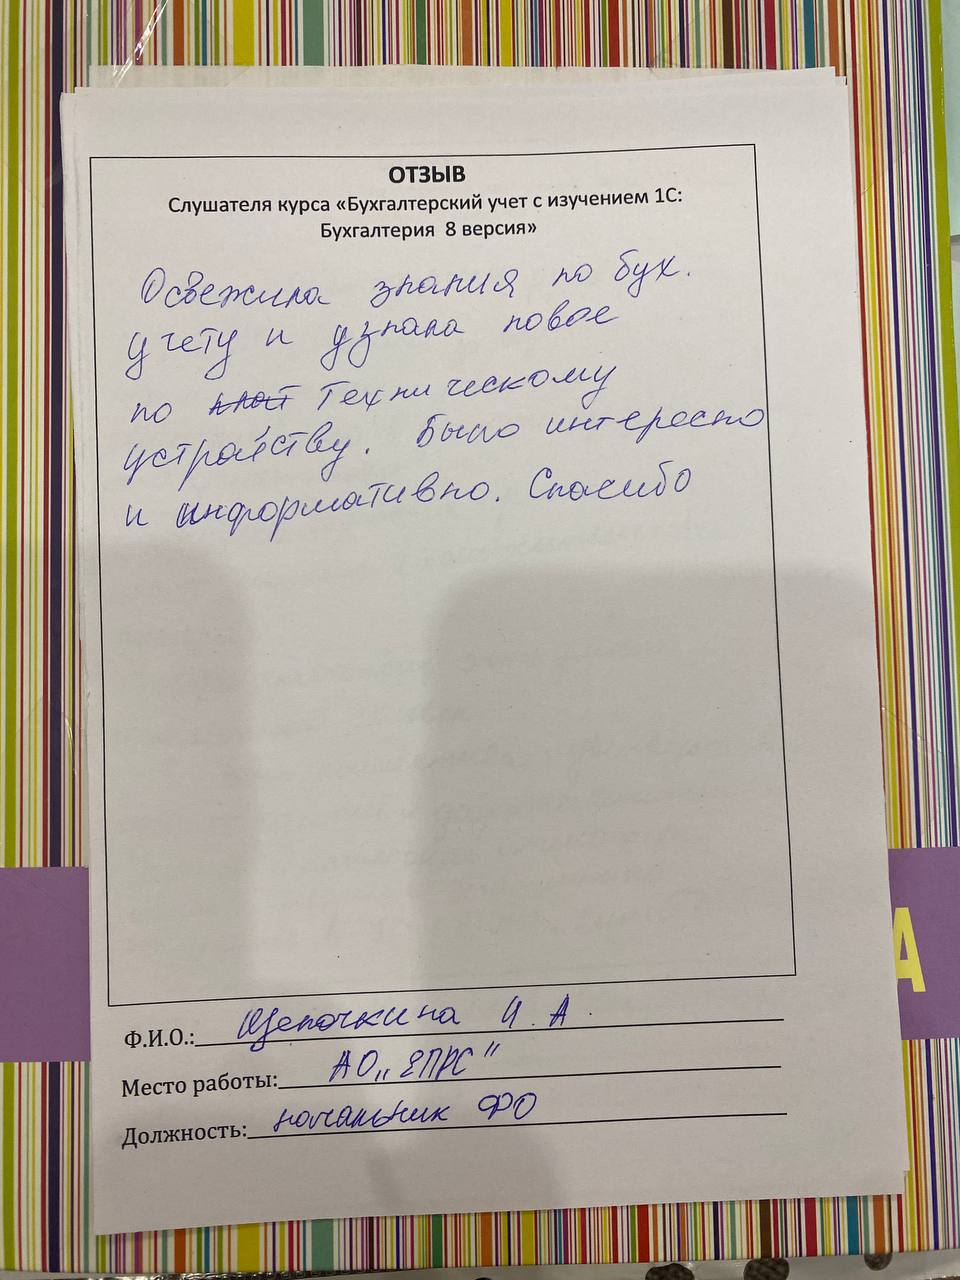 ОТЗЫВ
Слушателя курса «Бухгалтерский учет с изучением 1С:
Бухгалтерия 8 версия»
Освежила знания по бух.
учету и узнала новое
по Техническому
устройству. Было интересно
и информативно. Спасибо
Ф.И.О.: Щепочкина И. А.
Место работы: АО „ЕПРС"
Должность: начальник ФО
А